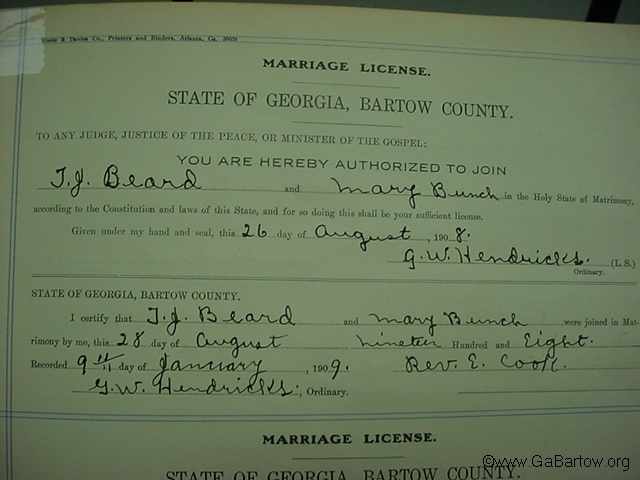 & Davies Co., Printers and Binders, Atlanta, Ga. 30029
MARRIAGE LICENSE.
STATE OF GEORGIA, BARTOW COUNTY.
TO ANY JUDGE, JUSTICE OF THE PEACE, OR MINISTER OF THE GOSPEL:
YOU ARE HEREBY AUTHORIZED TO JOIN
T.J. Beard and Mary Bunch in the Holy State of Matrimony,
according to the Constitution and laws of this State, and for so doing this shall be your sufficient license.
Given under my hand and seal, this 26 day of August, 1908.
G.W. Hendricks. (L.S.)
Ordinary.
STATE OF GEORGIA, BARTOW COUNTY.
I certify that T.J. Beard and Mary Bunch were joined in Mat-
rimony by me, this 28 day of August Nineteen Hundred and Eight.
Recorded 9th day of January, 1909. Rev. E. Cook.
G.W. Hendricks, Ordinary.
MARRIAGE LICENSE.
STATE OF GEORGIA, BARTOW COUNTY.
©www.GaBartow.org